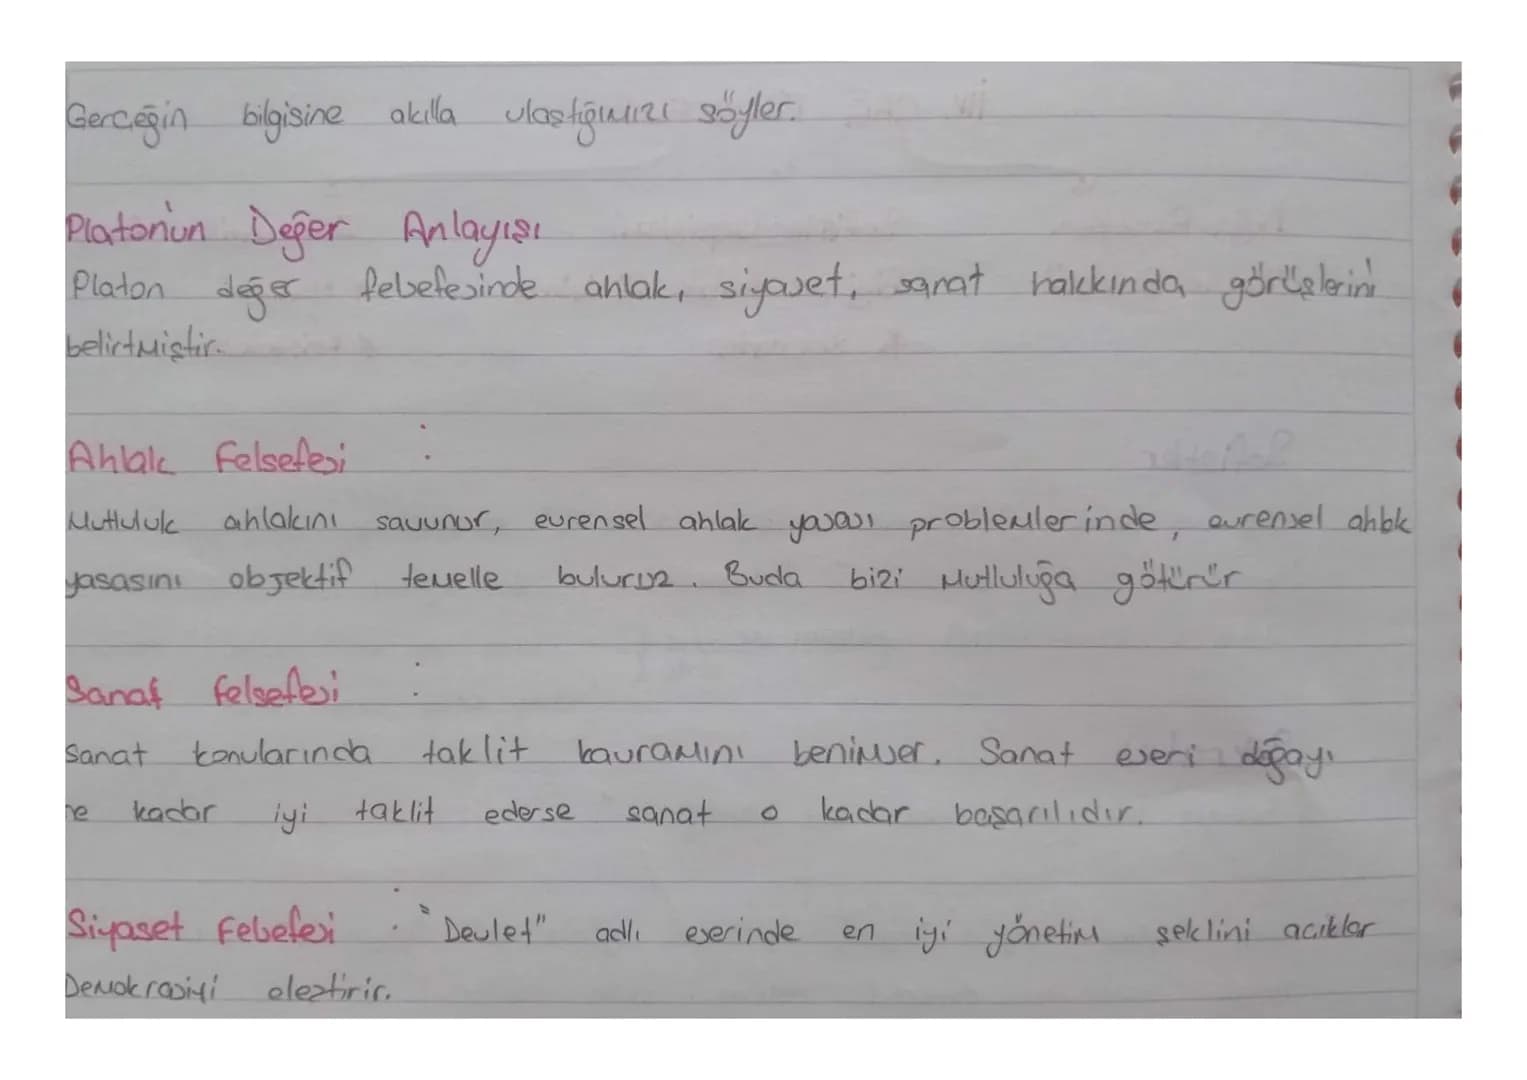 Gerçeğin bilgisine akılla ulaştığımızı söyler.
Platon'un Değer Anlayışı
Platon değer felsefesinde ahlak, siyaset, sanat hakkında görüşlerini
belirtmiştir.
Ahlak Felsefesi :
Mutluluk ahlakını savunur, evrensel ahlak yasası problemlerinde, evrensel ahlak
yasasını objektif temelle buluruz. Buda bizi Mutluluğa götürür
Sanat felsefesi :
Sanat konularında taklit kavramını benimser. Sanat eseri doğayı
ne kadar iyi taklit ederse sanat o kadar başarılıdır.
Siyaset Felsefesi : "Devlet" adlı eserinde en iyi yönetim şeklini açıklar
Demokrasiyi eleştirir.